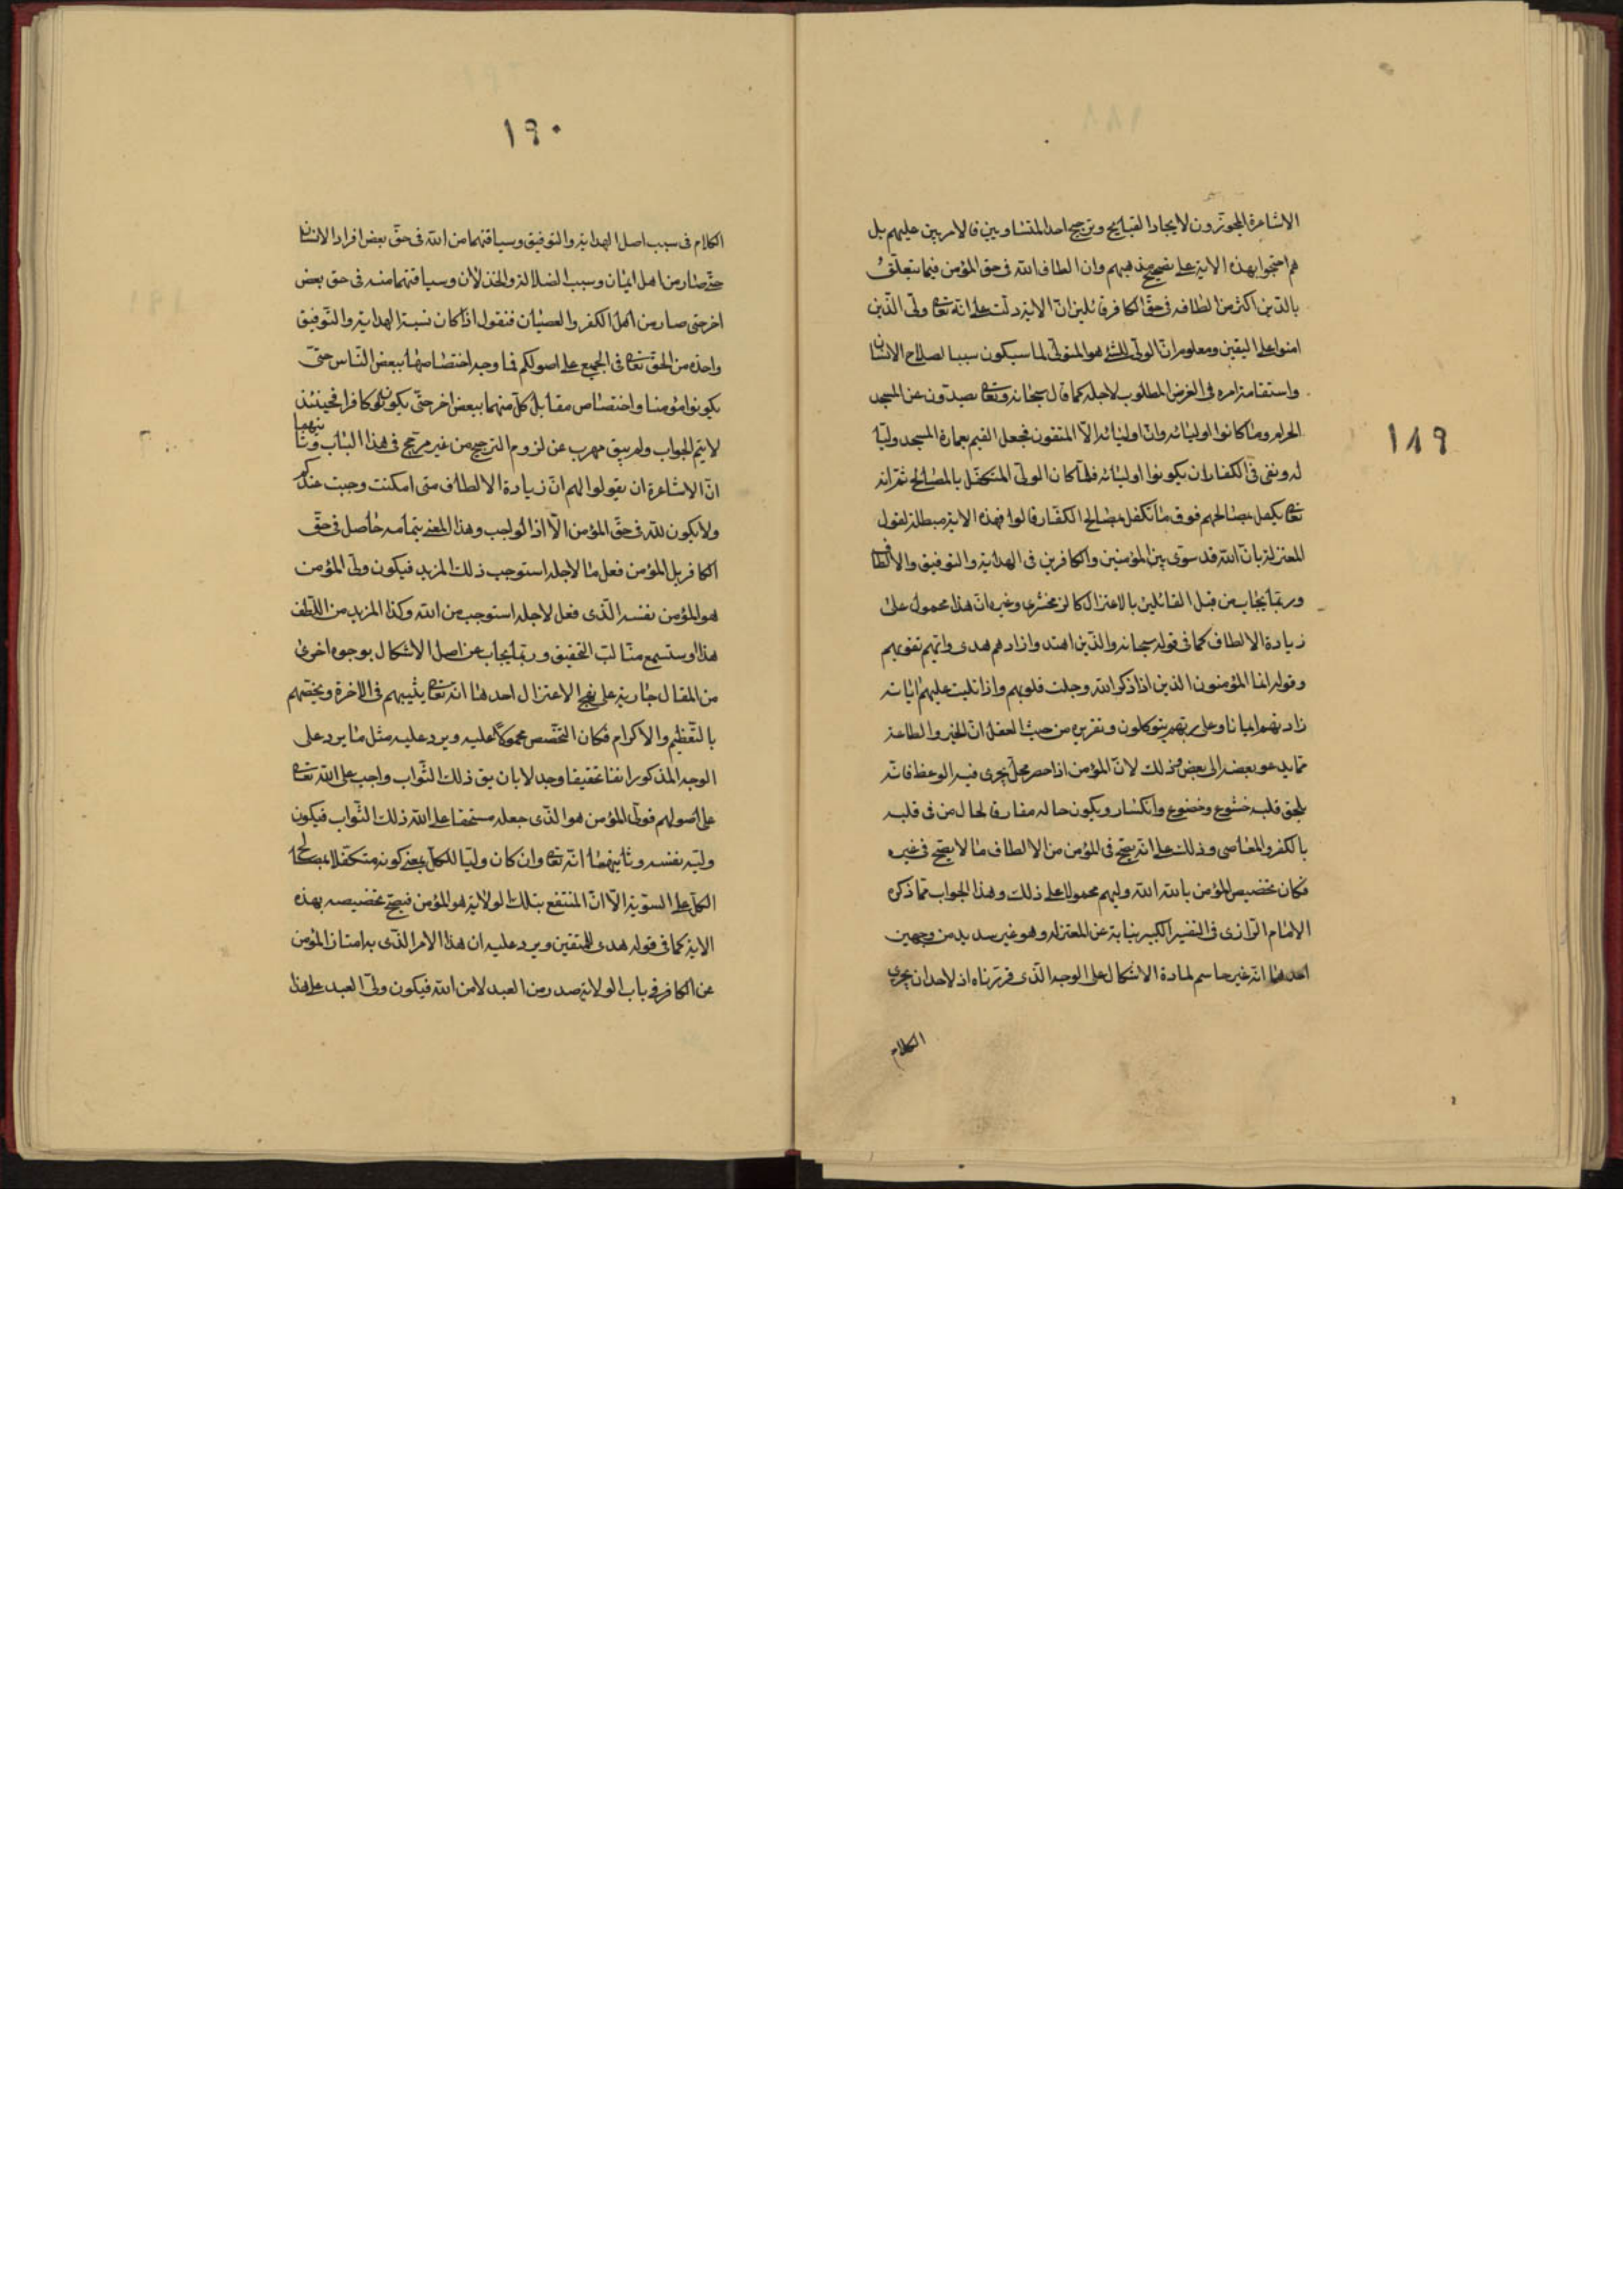 ١٨٩
الاشاعرة المجوزون لايجاد القبائح وترجيح احد المتساويين فالامر هين عليهم بل
هم احتجوا بهذه الاية على تصحيح مذهبهم وان الطاف الله فى حق المؤمن فيما يتعلق
بالدين اكثر من الطافه فى حق الكافر قائلين ان الاية دلت على انه تعا ولى الذين
امنوا على اليقين ومعلوم ان الولى للشئ هو المتولى لما سيكون سببا لصلاح الانسان
واستقامة امره فى الغرض المطلوب لاجله كما قال سبحانه وتعا يصدون عن المسجد
الحرام وما كانوا اوليائه وان اوليائه الا المتقون فجعل القيم بعمارة المسجد وليا
له ونفى فى الكفار ان يكونوا اوليائه فلما كان الولى المتكفل بالمصالح ثم انه
تعا يكفل بمصالحهم فوق ما تكفل بمصالح الكفار قالوا فهذه الاية مبطلة لقول
المعتزلة بان الله قد سوى بين المؤمنين والكافرين فى الهداية والتوفيق والالطاف
وربما يجاب من قبل القائلين بالاعتزال كالزمخشرى وغيره ان هذا محمول على
زيادة الالطاف كما فى قوله سبحانه والذين اهتدوا زادهم هدى واتيهم تقويهم
وقوله انما المؤمنون الذين اذا ذكر الله وجلت قلوبهم واذا تليت عليهم اياته
زادتهم ايمانا وعلى ربهم يتوكلون وتقريره من حيث العقل ان الخير والطاعة
مما يدعو بعضه الى بعض وذلك لان المؤمن اذا حضر محل يجرى فيه الوعظ فانه
يلحق قلبه خشوع وخضوع وانكسار ويكون حاله مفارقا لحال من فى قلبه
بالكفر والمعاصى وذلك على انه يصح فى المؤمن من الالطاف ما لا يصح فى غيره
فكان تخصيص المؤمن بالله الله وليهم محمولا على ذلك وهذا الجواب مما ذكره
الامام الرازى فى التفسير الكبير نيابة عن المعتزله وهو غير سديد من وجهين
احدهما انه غير حاسم لمادة الاشكال على الوجه الذى قررناه اذ لاحد ان يجرى
الكلام
١٩٠
الكلام فى سبب اصل الهداية والتوفيق وسياقتهما من الله فى حق بعض افراد الانسان
حتى صار من اهل ايمان وسبب الضلالة والخذلان وسياقتهما منه فى حق بعض
اخر حتى صار من اهل الكفر والعصيان فنقول اذا كان نسبة الهداية والتوفيق
واحدة من الحق تعا فى الجميع على اصولكم فما وجه اختصاصها ببعض الناس حتى
يكونوا مؤمنا واختصاص مقابل كل منهما ببعض اخر حتى يكون كافرا فحينئذ
لا يتم الجواب ولم يبق مهرب عن لزوم الترجيح من غير مرجح فى هذا الباب وثانيهما
ان الاشاعرة ان يقولوا لهم ان زيادة الالطاف متى امكنت وجبت عندكم
ولا يكون لله فى حق المؤمن الا اداء الواجب وهذا المعنى بتمامه حاصل فى حق
الكافر بل المؤمن فعل ما لاجله استوجب ذلك المزيد فيكون ولى المؤمن
هو المؤمن نفسه الذى فعل لاجله استوجب من الله وكذا المزيد من اللطف
هذا وستسمع منا لب التحقيق وربما يجاب عن اصل الاشكال بوجوه اخرى
من المقال جارية على نهج الاعتزال احدهما انه تعا يثيبهم فى الاخرة ويخصهم
بالتعظيم والاكرام فكان التخصص محمولا عليه ويرد عليه مثل ما يرد على
الوجه المذكور انفا تحقيقا وجدلا بان يق ذلك الثواب واجب على الله تعا
على اصولهم فولى المؤمن هو الذى جعله مستحقا على الله ذلك الثواب فيكون
وليه نفسه وثانيهما انه تعا وان كان وليا للكل بمعنى كونه متكفلا بمصالح
الكل على السوية الا ان المنتفع بتلك الولاية هو المؤمن فيصح تخصيصه بهذه
الاية كما فى قوله هدى للمتقين ويرد عليه ان هذا الامر الذى به امتاز المؤمن
عن الكافر فى باب الولاية صدر من العبد لا من الله فيكون ولى العبد على هذا